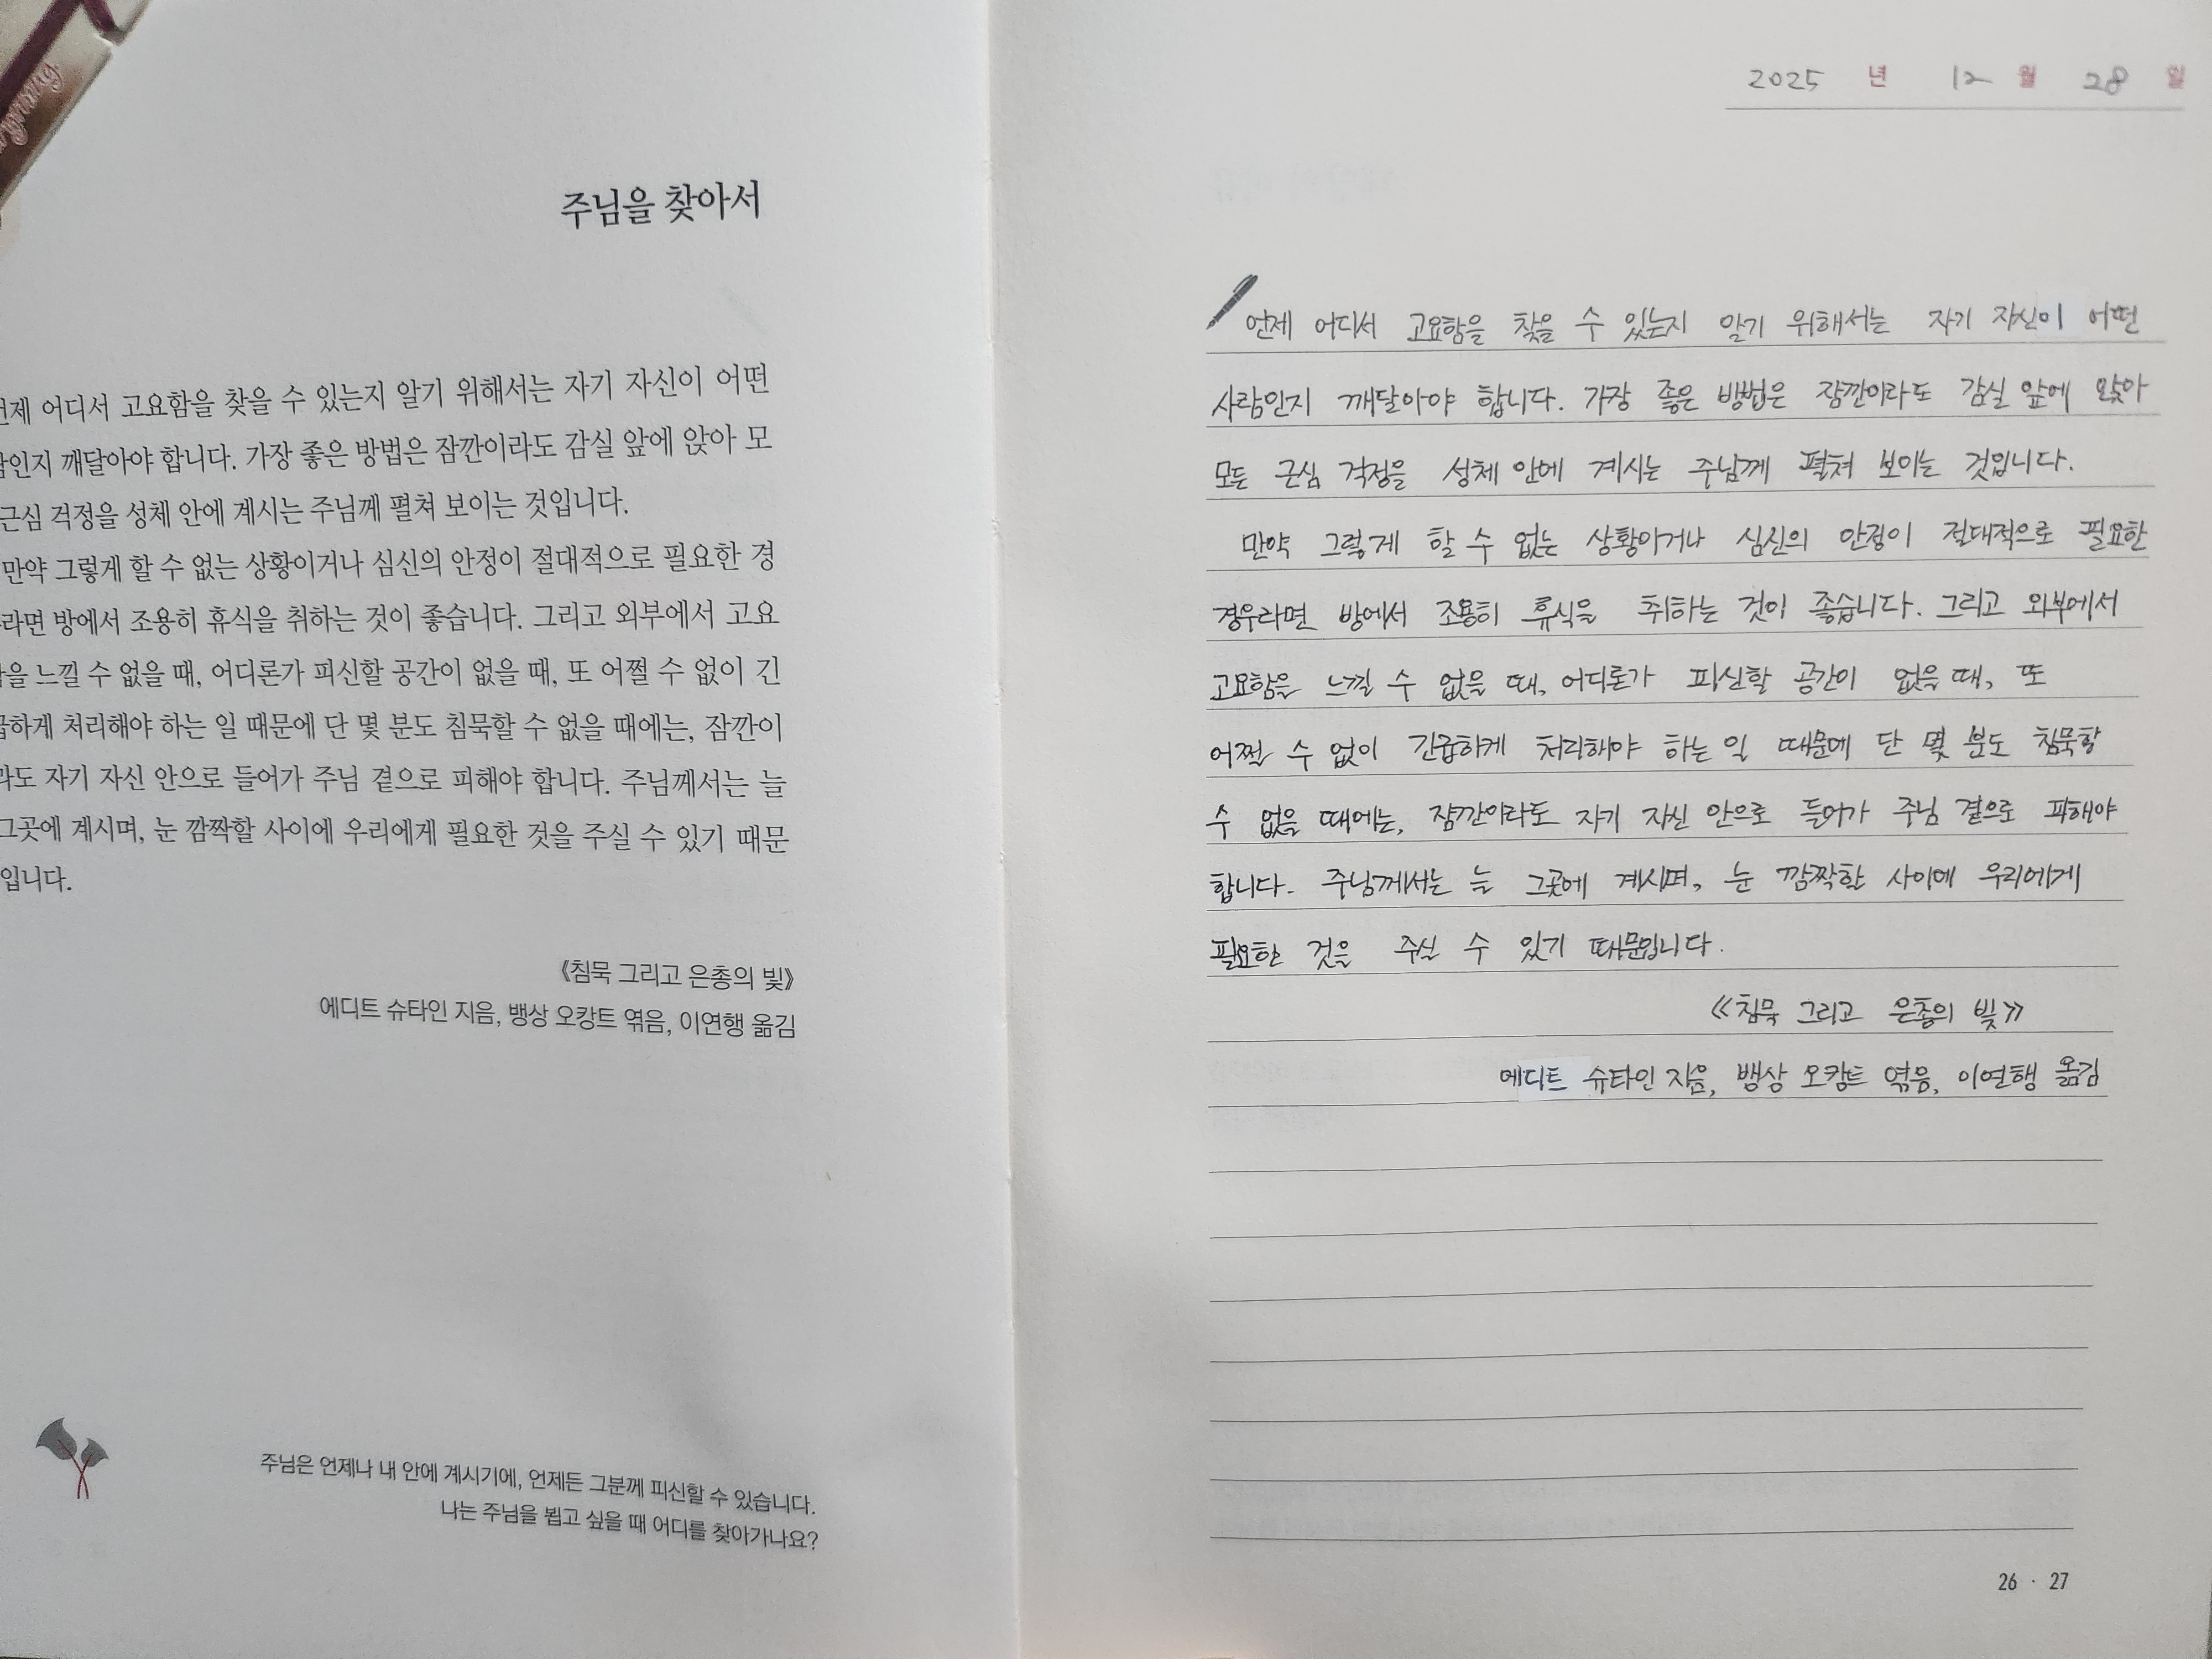 주님을 찾아서
언제 어디서 고요함을 찾을 수 있는지 알기 위해서는 자기 자신이 어떤
인지 깨달아야 합니다. 가장 좋은 방법은 잠깐이라도 감실 앞에 앉아 모
근심 걱정을 성체 안에 계시는 주님께 펼쳐 보이는 것입니다.
만약 그렇게 할 수 없는 상황이거나 심신의 안정이 절대적으로 필요한 경
라면 방에서 조용히 휴식을 취하는 것이 좋습니다. 그리고 외부에서 고요
을 느낄 수 없을 때, 어디론가 피신할 공간이 없을 때, 또 어쩔 수 없이 긴
급하게 처리해야 하는 일 때문에 단 몇 분도 침묵할 수 없을 때에는, 잠깐이
라도 자기 자신 안으로 들어가 주님 곁으로 피해야 합니다. 주님께서는 늘
그곳에 계시며, 눈 깜짝할 사이에 우리에게 필요한 것을 주실 수 있기 때문
입니다.
《침묵 그리고 은총의 빛》
에디트 슈타인 지음, 뱅상 오캉트 엮음, 이연행 옮김
주님은 언제나 내 안에 계시기에, 언제든 그분께 피신할 수 있습니다.
나는 주님을 뵙고 싶을 때 어디를 찾아가나요?
2025 년 12 월 28 일
언제 어디서 고요함을 찾을 수 있는지 알기 위해서는 자기 자신이 어떤
사람인지 깨달아야 합니다. 가장 좋은 방법은 잠깐이라도 감실 앞에 앉아
모든 근심 걱정을 성체 안에 계시는 주님께 펼쳐 보이는 것입니다.
만약 그렇게 할 수 없는 상황이거나 심신의 안정이 절대적으로 필요한
경우라면 방에서 조용히 휴식을 취하는 것이 좋습니다. 그리고 외부에서
고요함을 느낄 수 없을 때, 어디론가 피신할 공간이 없을 때, 또
어쩔 수 없이 긴급하게 처리해야 하는 일 때문에 단 몇 분도 침묵할
수 없을 때에는, 잠깐이라도 자기 자신 안으로 들어가 주님 곁으로 피해야
합니다. 주님께서는 늘 그곳에 계시며, 눈 깜짝할 사이에 우리에게
필요한 것을 주실 수 있기 때문입니다.
《침묵 그리고 은총의 빛》
에디트 슈타인 지음, 뱅상 오캉트 엮음, 이연행 옮김
26 · 27